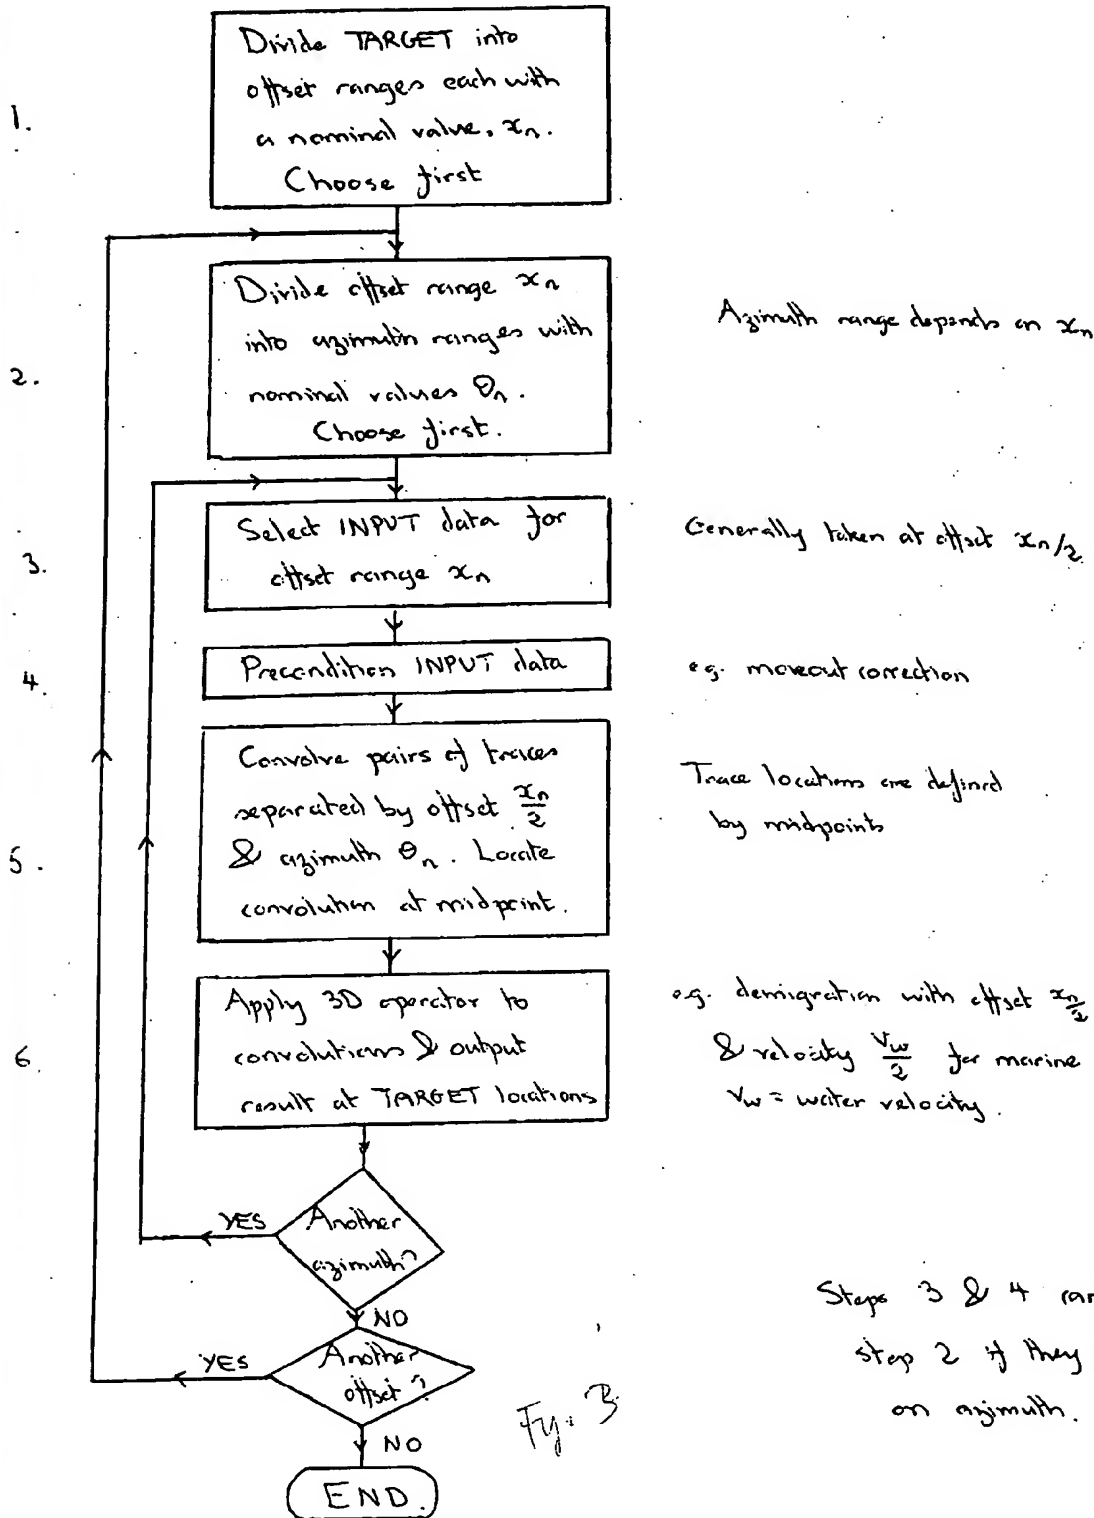 1.
Divide TARGET into
offset ranges each with
a nominal value, xₙ.
Choose first
2.
Divide offset range xₙ
into azimuth ranges with
nominal values θₙ.
Choose first.
Azimuth range depends on xₙ
3.
Select INPUT data for
offset range xₙ
Generally taken at offset xₙ/2
4.
Precondition INPUT data
e.g. moveout correction
5.
Convolve pairs of traces
separated by offset xₙ/2
& azimuth θₙ. Locate
convolution at midpoint.
Trace locations are defined
by midpoints
6.
Apply 3D operator to
convolutions & output
result at TARGET locations
e.g. demigration with offset xₙ/2
& velocity v_w/2 for marine
v_w = water velocity.
YES
Another
azimuth?
NO
YES
Another
offset?
NO
END.
Steps 3 & 4 can
step 2 if they
on azimuth.
Fig. 3